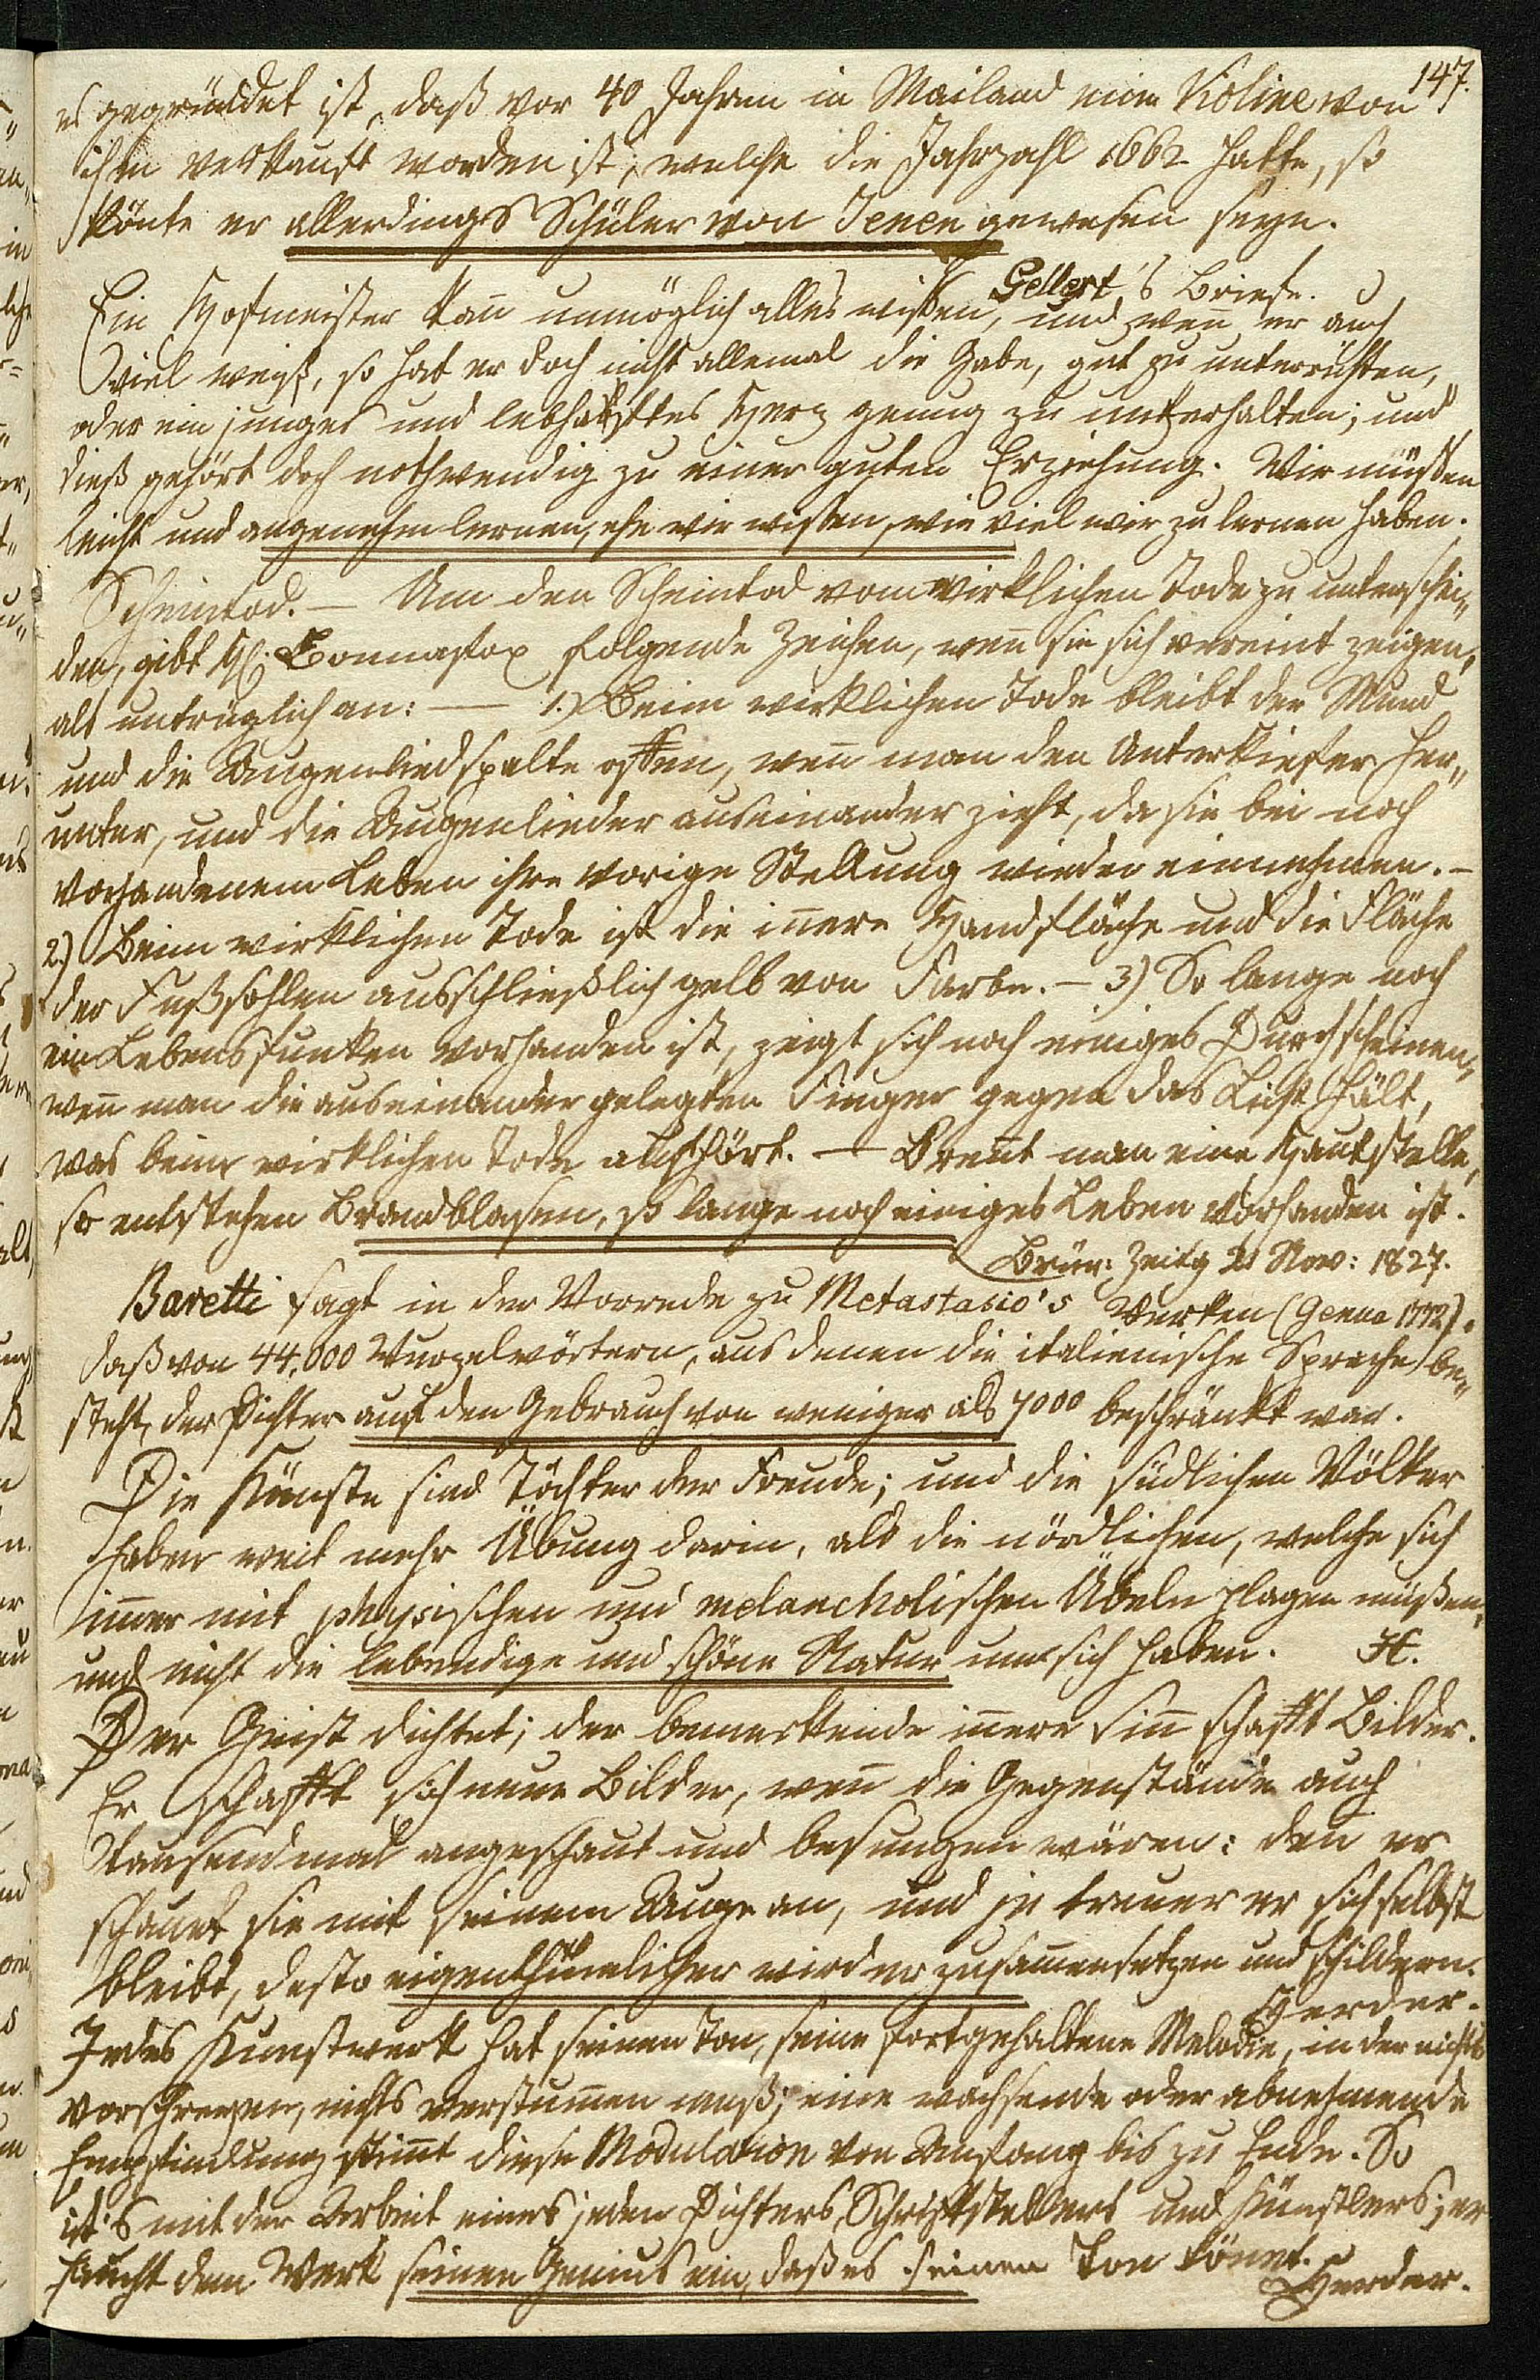 147.
es gegründet ist, daß vor 40 Jahren in Mailand eine Violine von
ihm verkauft worden ist, welche die Jahrzahl 1662 hatte, so
könte er allerdings Schüler von Jenen gewesen seyn.
Gellert's Briefe.
Ein Hofmeister kan̅ unmöglich alles wißen, und wen̅ er auch
viel weiß, so hat er doch nicht allemal die Gabe, gut zu unterrichten,
oder ein junges und lebhaftes Herz genug zu unterhalten; und
dieß gehört doch nothwendig zu einer guten Erziehung. Wir müßen
leicht und angenehm lernen, ehe wir wißen, wie viel wir zu lernen haben.
Scheintod. — Um den Scheintod vom wirklichen Tode zu unterschei„
den, gibt H. Bonnafox folgende Zeichen, wen̅ sie sich vereint zeigen,
als untrüglich an: — 1.) Beim wirklichen Tode bleibt der Mund
und die Augenliedspalte offen, wen̅ man den Unterkiefer her„
unter, und die Augenlieder auseinander zieht, da sie bei noch
vorhandenem Leben ihre vorige Stellung wieder einnehmen. –
2.) Beim wirklichen Tode ist die in̅ere Handfläche und die Fläche
der Fußsohlen ausschließlich gelb von Farbe. – 3) So lange noch
ein Lebensfunken vorhanden ist, zeigt sich noch einiges Durchscheinen,
wen̅ man die auseinander gelegten Finger gegen das Licht hält,
was beim wirklichen Tode aufhört. — Bren̅t man eine Hautstelle,
so entstehen Brandblasen, so lange noch einiges Leben vorhanden ist.
Brün: Zeitg 21 Nov: 1827.
Baretti sagt in der Vorrede zu Metastasio's Werken (Genua 1772).
daß von 44,000 Wurzelwörtern, aus denen die italienische Sprache be„
steht, der Dichter auf den Gebrauch von weniger als 7000 beschränkt war.
Die Künste sind Töchter der Freude; und die südlichen Völker
haben weit mehr Übung darin, als die nördlichen, welche sich
im̅er mit physischen und melancholischen Übeln plagen müßen,
und nicht die lebendige und schöne Natur um sich haben. H.
Der Geist dichtet; der bemerkende in̅ere Sin̅ schafft Bilder.
Er schafft sich neue Bilder, wen̅ die Gegenstände auch
tausendmal angeschaut und besungen wären: den̅ er
schauet sie mit seinem Auge an, und je treuer er sich selbst
bleibt, desto eigenthümlicher wird er zusam̅ensetzen und schildern.
Herder.
Jedes Kunstwerk hat seinen Ton, seine fortgehaltene Melodie, in der nichts
vorschreyen, nichts verstum̅en muß; eine wachsende oder abnehmende
Empfindung stim̅t diese Modulation von Anfang bis zu Ende. So
ist's mit der Arbeit eines jeden Dichters, Schriftstellers und Künstlers; er
haucht dem Werk seinen Genius ein, daß es seinen Ton tönet.
Herder.